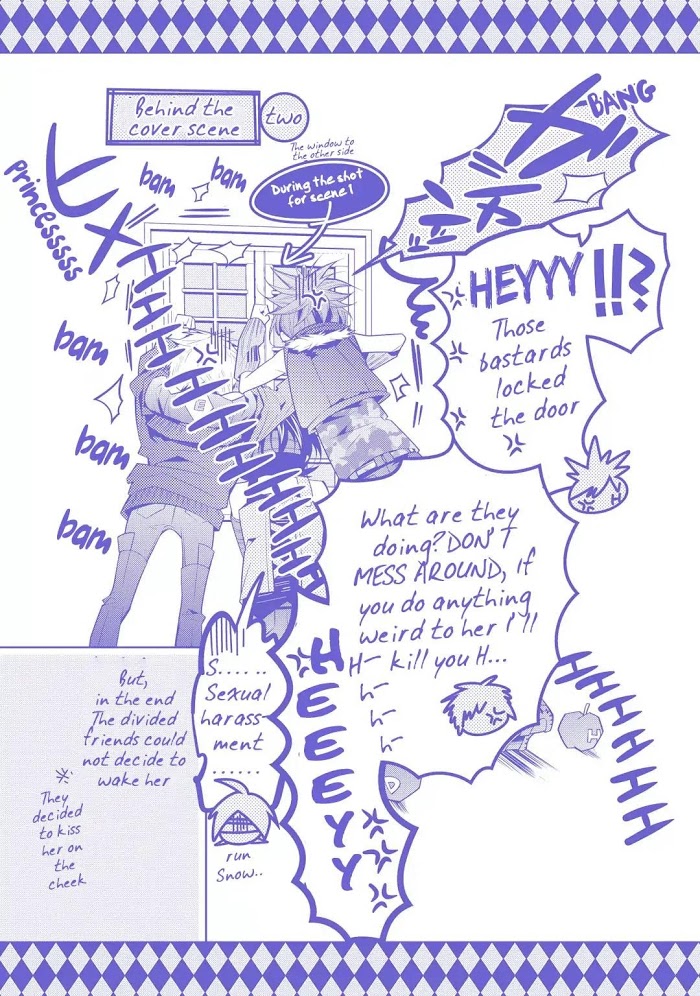 Behind the
cover scene
two
The window to
the other side
During the shot
for scene 1
BANG
Princesssss
bam
bam
bam
bam
bam
HHHHHHHHHHHHH
HEYYY!!?
Those
bastards
locked
the door
What are they
doing? DON'T
MESS AROUND, If
you do anything
weird to her I'll
H- kill you H...
h-
h-
h-
HHHHHHH
HEEEEYY
S......
Sexual
harass-
ment
......
run
Snow..
But,
in the end
The divided
friends could
not decide to
wake her
※
They
decided
to kiss
her on
the
cheek